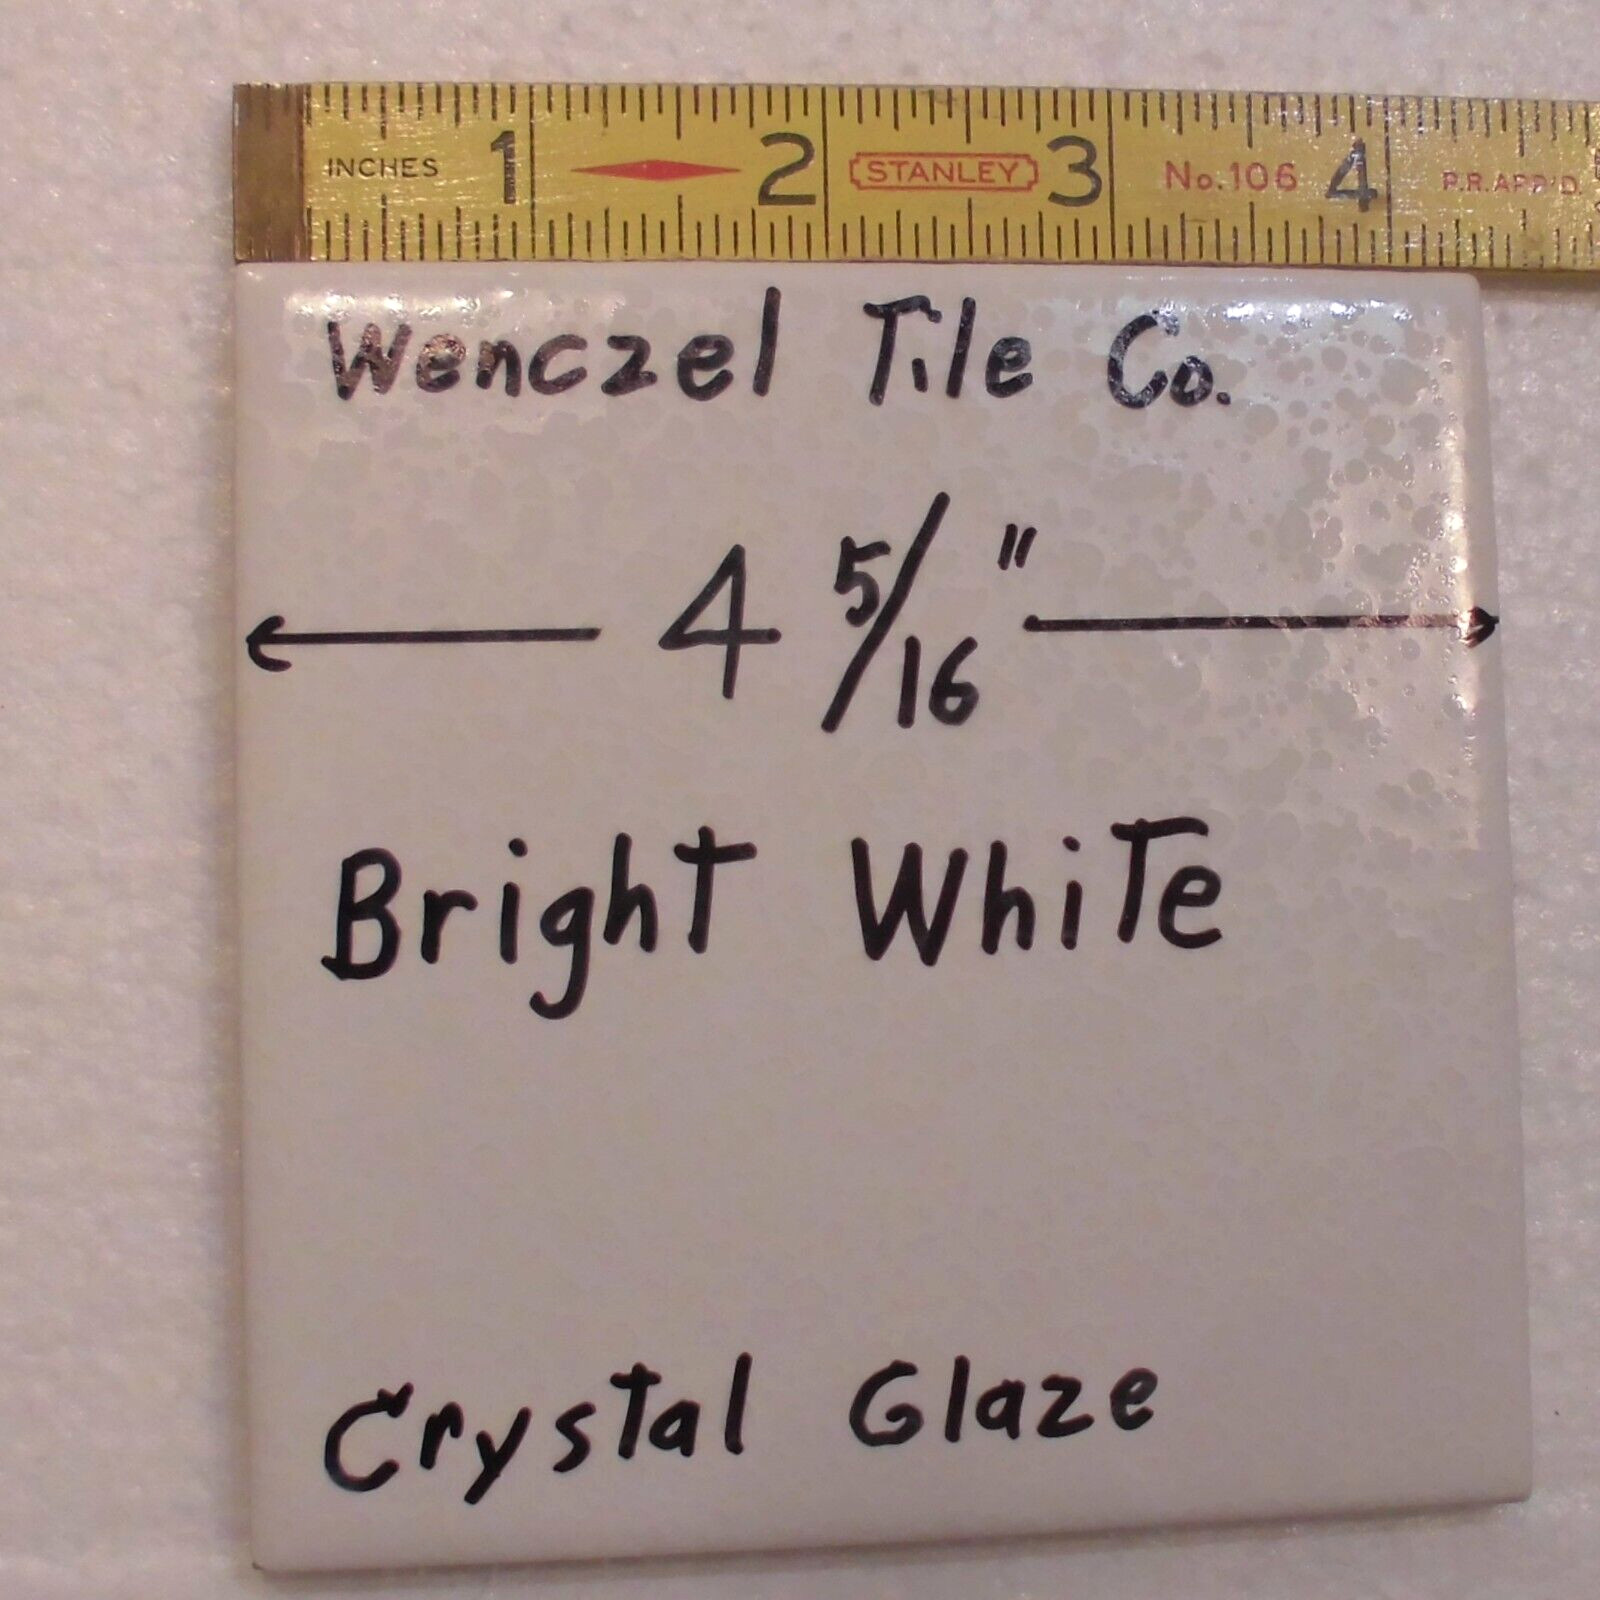 INCHES 1 2 STANLEY 3 No.106 4 P.R.APP'D.
Wenczel Tile Co.
4 5/16"
Bright White
Crystal Glaze